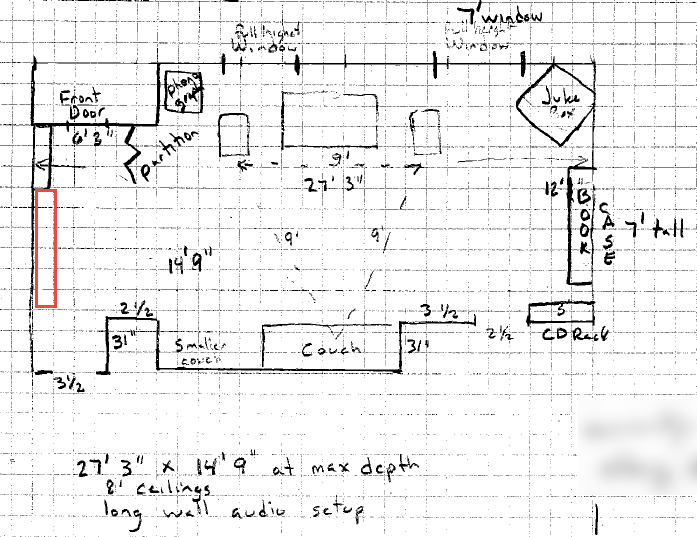 7' window
Full height
Window
Full height
Window
Phono
graph
Juke
Box
Front
Door
6' 3"
partition
9'
27' 3"
12"
BOOK
CASE
7' tall
9'
9'
14' 9"
2 1/2
31"
Smaller
couch
Couch
3 1/2
31"
2 1/2
3
CD Rack
3 1/2
27' 3" x 14' 9" at max depth
8' ceilings
long wall audio setup